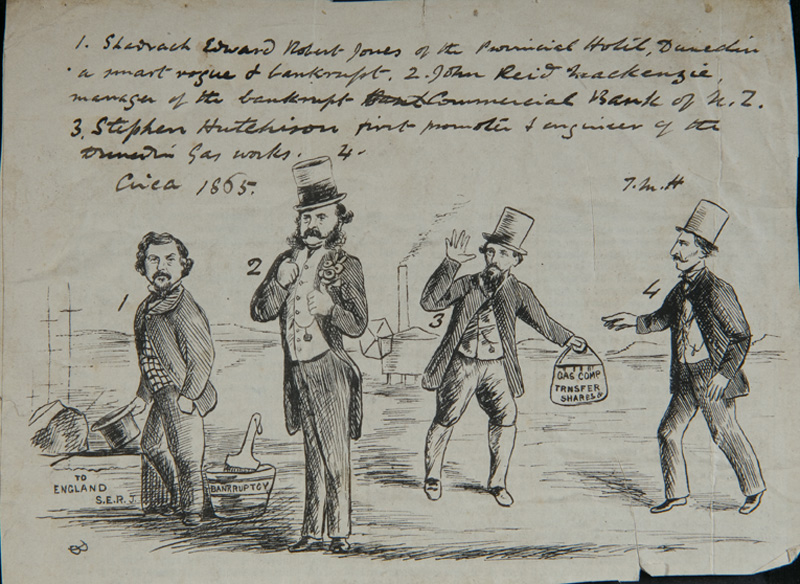 1. Shadrach Edward Robert Jones of the Provincial Hotel, Dunedin
a smart rogue & bankrupt. 2. John Reid Mackenzie,
manager of the bankrupt Commercial Bank of N.Z.
3. Stephen Hutchison first promoter & engineer of the
Dunedin Gas works. 4.
Circa 1865.
T.M.H
1
2
3
4
GAS COMP
TRNSFER
SHARES
TO
ENGLAND
S.E.R.J.
BANKRUPTCY